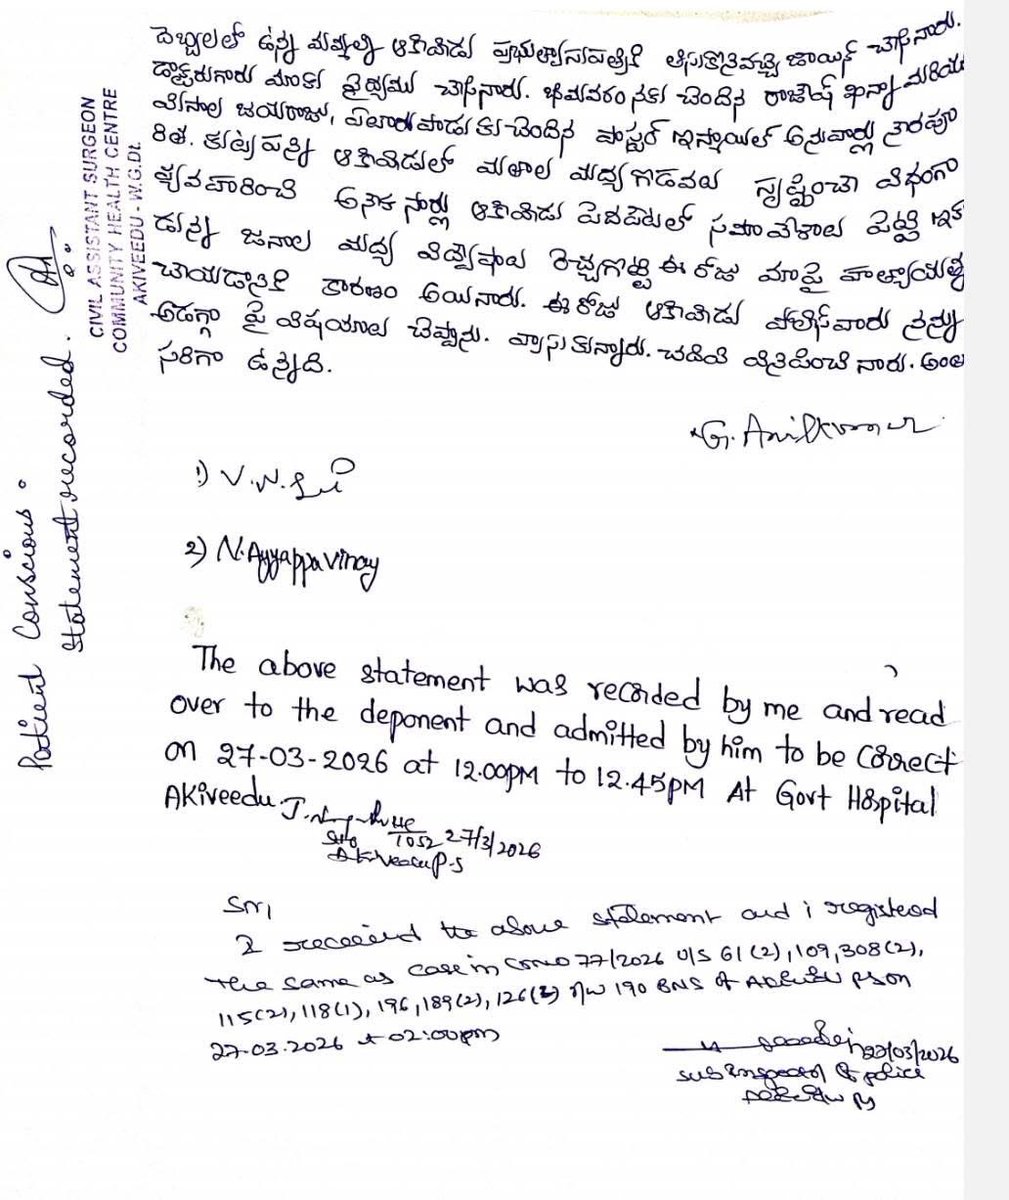 దెబ్బలలో ఉన్న మమ్మల్ని ఆకివీడు ప్రభుత్వాసుపత్రికి తీసుకొనివచ్చి జాయిన్ చేసినారు.
డాక్టరుగారు మాకు వైద్యము చేసినారు. భీమవరంనకు చెందిన రాజేష్ ఖన్నా మరియు
వీసాల జయరాజు, ఏలూరుపాడుకు చెందిన పాస్టర్ ఇస్మాయిల్ అనువార్లు నేరపూ
రిత కుట్ర పన్ని ఆకివీడులో మతాల మధ్య గొడవలు సృష్టించే విధంగా
వ్యవహరించి అనేక సార్లు ఆకివీడు పెదపేటలో సమావేశాలు పెట్టి ఇక్క
డున్న జనాల మధ్య విద్వేషాలు రెచ్చగొట్టి ఈ రోజు మాపై హత్యాయత్నం
చేయడానికి కారణం అయినారు. ఈ రోజు ఆకివీడు పోలీస్ వారు నన్ను
అడగ్గా పై విషయాలు చెప్పాను. వ్రాసుకున్నారు. చదివి వినిపించినారు. అంతా
సరిగా ఉన్నది.
G. Anilkumar
1) V.W.
2) N. Ayyappa Vinay
Patient Conscious.
Statement recorded.
CIVIL ASSISTANT SURGEON
COMMUNITY HEALTH CENTRE
AKIVEEDU - W.G.Dt.
The above statement was recorded by me and read
over to the deponent and admitted by him to be correct
on 27-03-2026 at 12.00PM to 12.45PM At Govt Hospital
AKiveedu.
HC
1052 27/3/2026
Akiveedu P.S
Sir,
I received the above statement and i registered
the same as case in Cr No 77/2026 U/S 61(2), 109, 308(2),
115(2), 118(1), 196, 189(2), 126(2) r/w 190 BNS of Akiveedu PS on
27-03-2026 at 02:00pm
27/03/2026
Sub Inspector of police
Akiveedu PS